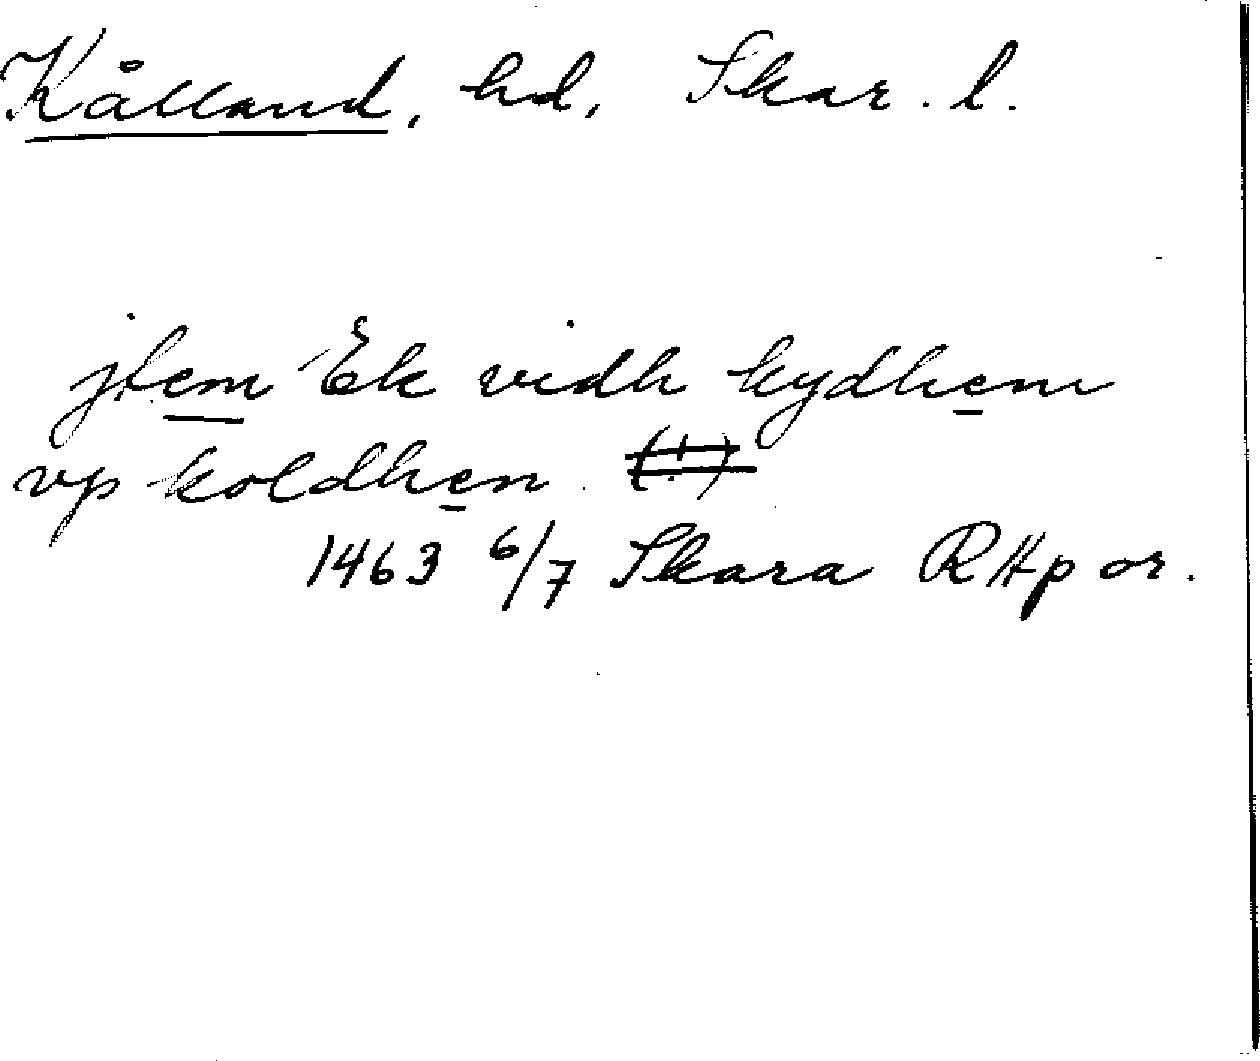 Kålland, hd, Skar. l.
jtem Ek vidh kydhem
vp koldhen. (!)
1463 6/7 Skara RAp or.